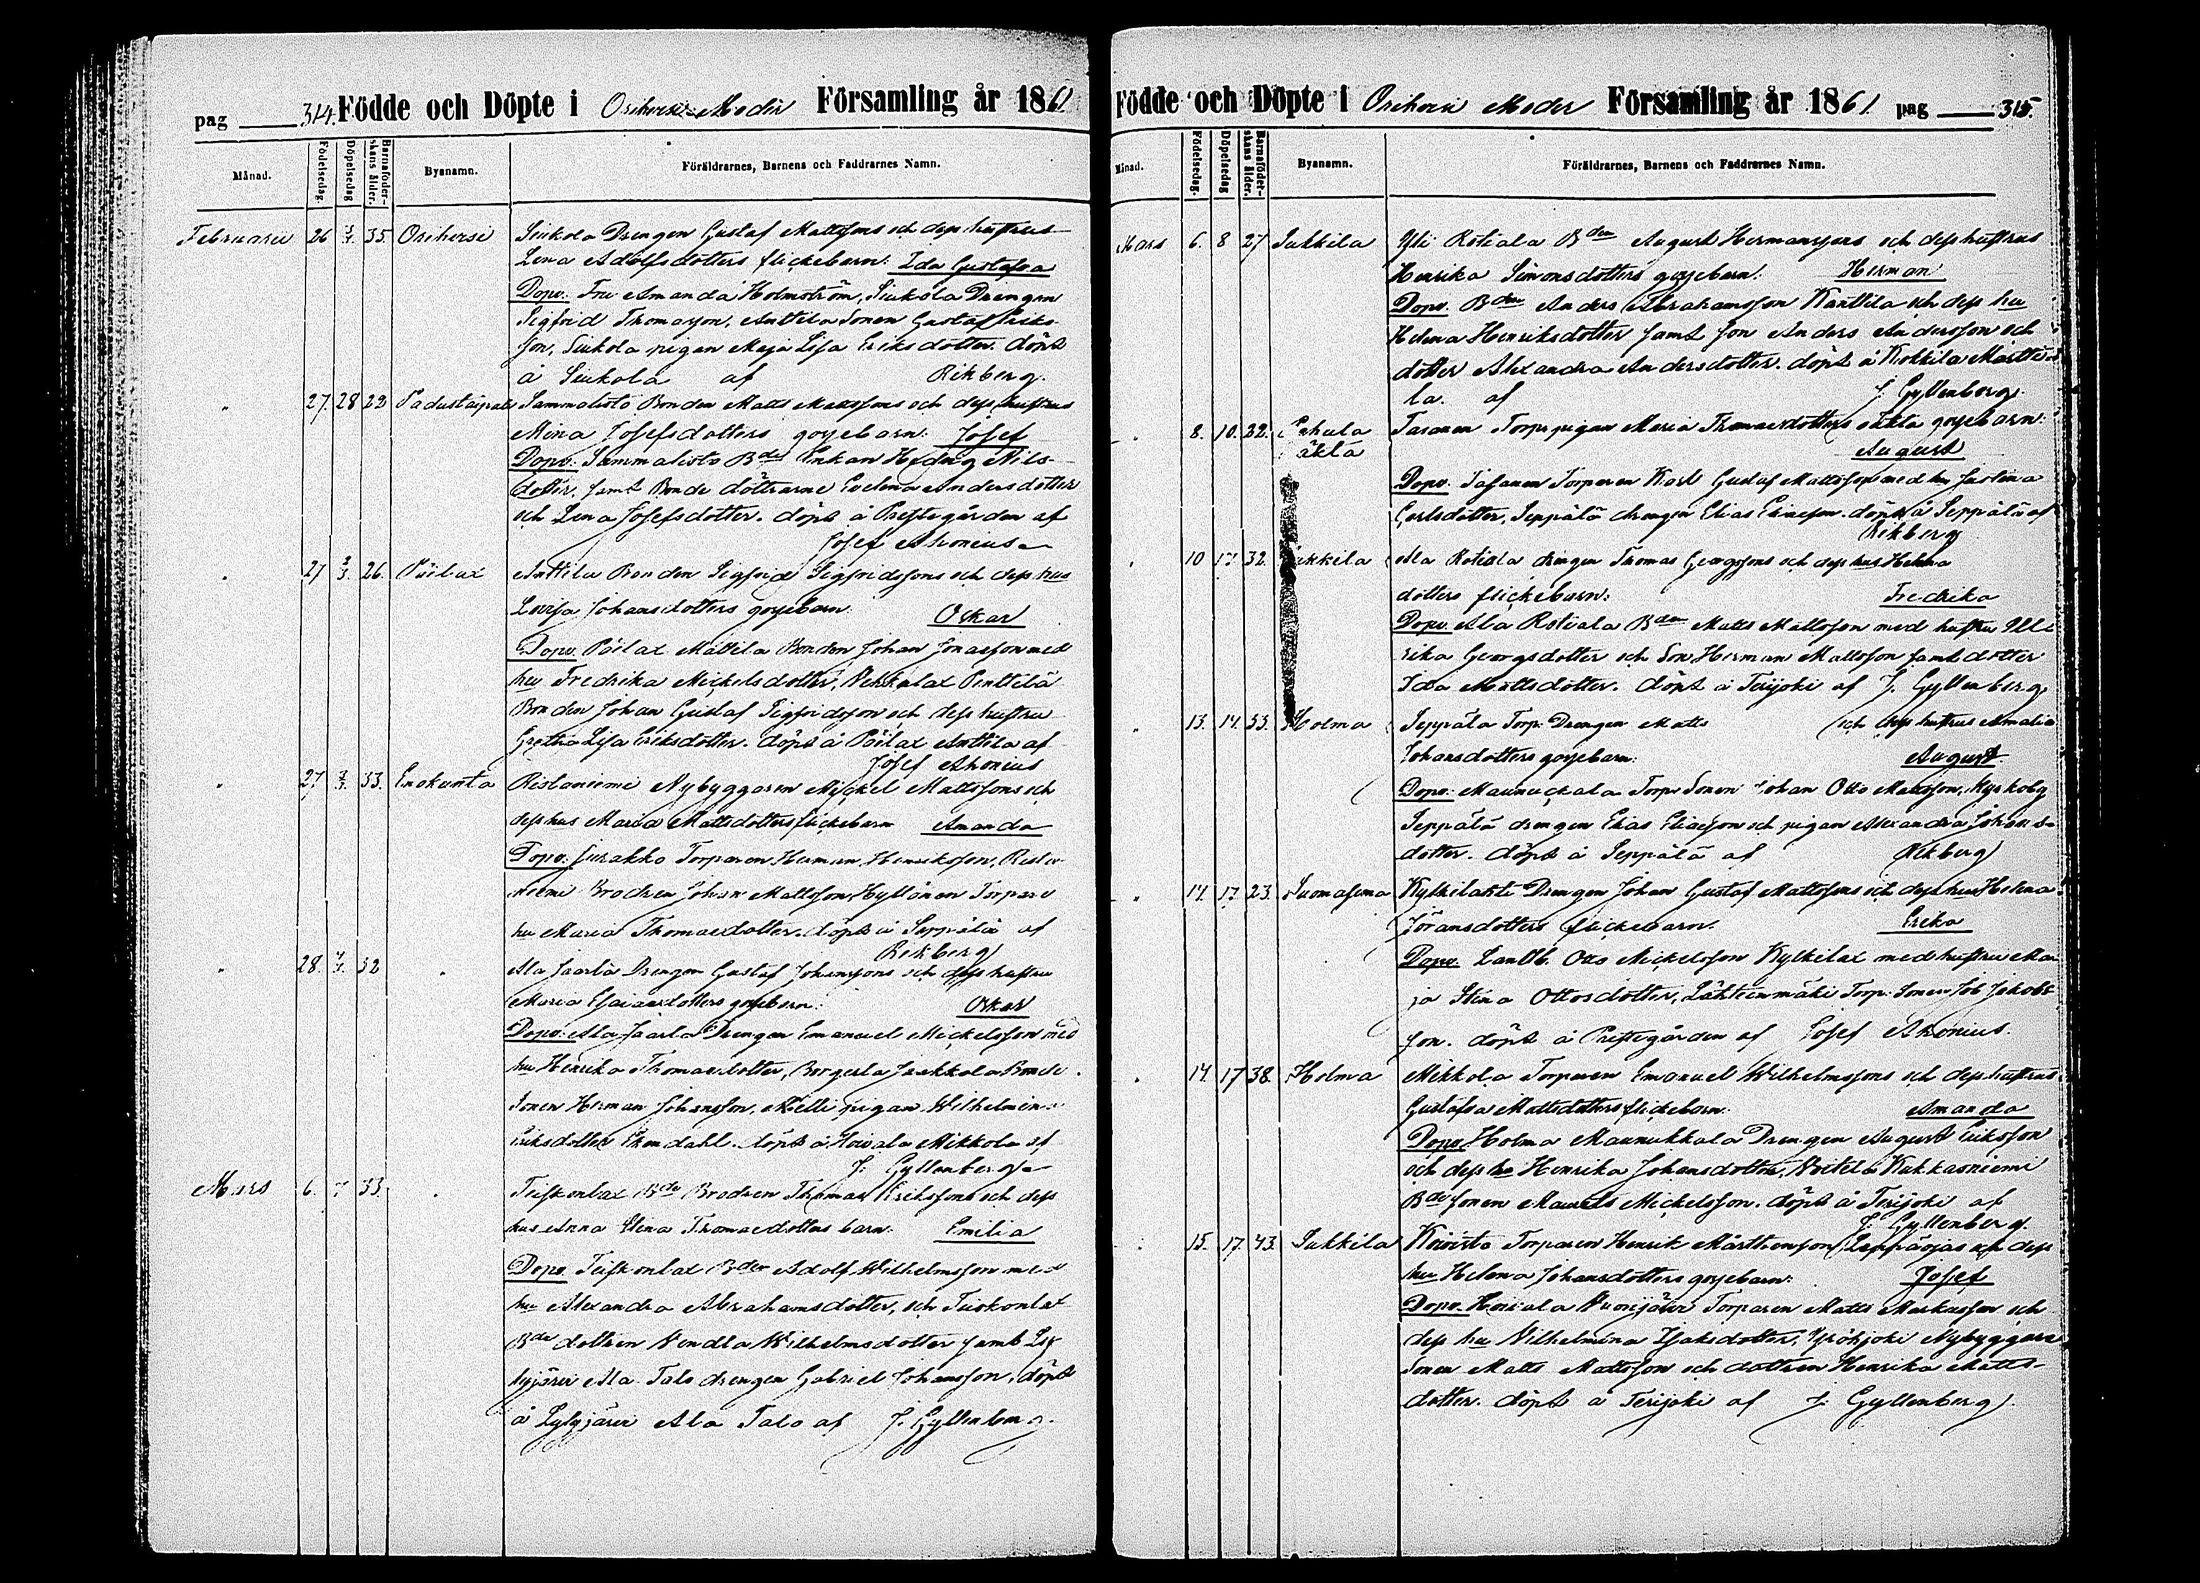 pag 314. Födde och Döpte i Orihvesi Moder Församling år 1861
Månad. Födelsedag. Döpelsedag Barnaföderskans ålder. Bynamn. Föräldrarnes, Barnens och Faddrarnes Namn.
Februarii 26 35. Orihvesi Siukola Drengen Gustaf Mattssons och dess hustrus
Lena Adolfsdotters flickebarn: Ida Gustafva
Dopv: Fru Amanda Holmström, Siukola Drengen
Sigfrid Thomasson, Anttila Sonen Gustaf Eriks-
son, Siukola pigan Maja Lisa Eriksdotter. döpt
å Siukola af Rikberg.
" 27. 28 22 Sammalisto Bonden Matts Mattssons och dess hustrus
Mina Josefsdotters gossebarn: Josef
Dopv: Sammalisto Bde Enkan Hedvig Nils-
dotter, samt Bonde döttrarne Evelina Andersdotter
och Lena Josefsdotter. döpt å Prestegården af
Josef Ahonius
" 27 2/3. 26. Päilax Anttila Bonden Sigfrid Sigfridssons och dess hus
Lovisa Johansdotters gossebarn. Oskar
Dopv. Päilax Mattila Bonden Johan Jonasson med
hu Fredrika Mickelsdotter, Penttilä
Bonden Johan Gustaf Sigfridsson och dess hustru
Gretha Lisa Eriksdotter. döpt å Päilax Anttila af
Josef Ahonius
" 27. 33. Enokunta Ristaniemi Nybyggaren Mickel Mattssons och
dess hus Maria Mattsdotters flickebarn Amanda
Dopv. Torparen Herman Henriksson, Rista-
niemi Brodren Johan Mattsson, Hyllönen Torpare
hu Maria Thomasdotter. döpt å Seppälä af
Rikberg
" 28. 32 " Ala Jaarla Drengen Gustaf Johanssons och dess hustru
Maria Esaiaedotters gossebarn: Oskar
Dopv: Ala Jaarla Drengen Emanuel Mickelsson med
hu Henrika Thomasdotter, Jaakkola Bonde
Sonen Herman Johansson, pigan Wilhelmina
Eriksdotter Ekendahl. döpt å Hoivala Mikkola af
J. Gyllenberg
Mars 6. 7 33. " Teiskonlax Bde Brodren Thomas Erikssons och dess
hus Anna Stina Thomaedotters barn. Emilia
Dopv. Teiskonlax Bden Adolf Wilhelmsson med
hu Alexandra Abrahamsdotter, och Teiskonlax
Bde dottren Vendla Wilhelmsdotter samt Lyly
kyjärvi Ala Talo drengen Gabriel Johansson, döpt
å Lylyjärvi Ala Talo af J. Gyllenberg.
Födde och Döpte i Orihvesi Moder Församling år 1861. pag 315.
Månad. Födelsedag. Döpelsedag Barnaföderskans ålder. Bynamn. Föräldrarnes, Barnens och Faddrarnes Namn.
Mars 6. 8 27 Sukkila Yli Rotiala Bden August Hermanssons och dess hustrus
Henrika Simonsdotters gossebarn. Herman
Dopv. Bden Anders Abrahamsson Kanttila och dess hu
Helena Henriksdotter samt son Anders Andersson och
dotter Alexandra Andersdotter. döpt å Martti-
la. af J. Gyllenberg.
" 8. 10. 22. Torp. pigan Maria Thomaedotters oäkta gossebarn.
oäkta August
Dopv. Torparen Karl Gustaf Mattsson med hu Justina
Carlsdotter, Seppälä drengen Elias Eliaeson. döpt å Seppälä af
Rikberg
" 10 17 32. Sukkila Ala Rotiala drengen Thomas Georgssons och dess hus Helena
dotters flickebarn: Fredrika
Dopv. Ala Rotiala Bden Matts Mattsson med hustru Ul-
rika Georgsdotter och Son Herman Mattsson samt dotter
Ida Mattsdotter. döpt å Terijoki af J. Gyllenberg
" 13. 14. 33. Holma Seppälä Torp. Drengen Matts och dess hustrus Amalia
Johansdotters gossebarn: August.
Dopv: Maunuckala Torp Sonen Johan Otto Mattsson, Kyrkoby
Seppälä drengen Elias Eliaeson och pigan Alexandra Johans-
dotter. döpt å Seppälä af Rikberg
" 14. 17 23. Suomasema Kylkilahti Drengen Johan Gustaf Mattssons och dess hus Helena
Jöransdotters flickebarn. Erika
Dopv. Landb. Otto Mickelsson Kylkilax med hustru Ma-
ja Stina Ottosdotter, Lähteenmäki Torp. Sonen Job Jakobs-
son. döpt å Prestegården af Josef Ahonius.
" 14. 17 38. Holma Mikkola Torparen Emanuel Wilhelmssons och dess hustrus
Gustafva Mattsdotters flickebarn. Amanda
Dopv. Holma Maunukkala Drengen August Eriksson
och dess hu Henrika Johansdotter, Kukkasniemi
Bde sonen Maurits Mickelsson. döpt å Terijoki af
J. Gyllenberg.
" 15. 17. 43. Sukkila Koivisto Torparen Henrik Mårthensson (Leppäojas och dess
hu Helena Johansdotters gossebarn: Josef
Dopv. Hoivala Vuorijärvi Torparen Matts Markusson och
dess hu Vilhelmina Isaksdotter, Nybyggare
Sonen Matts Mattsson och dottren Henrika Matts-
dotter. döpt å Terijoki af J. Gyllenberg.